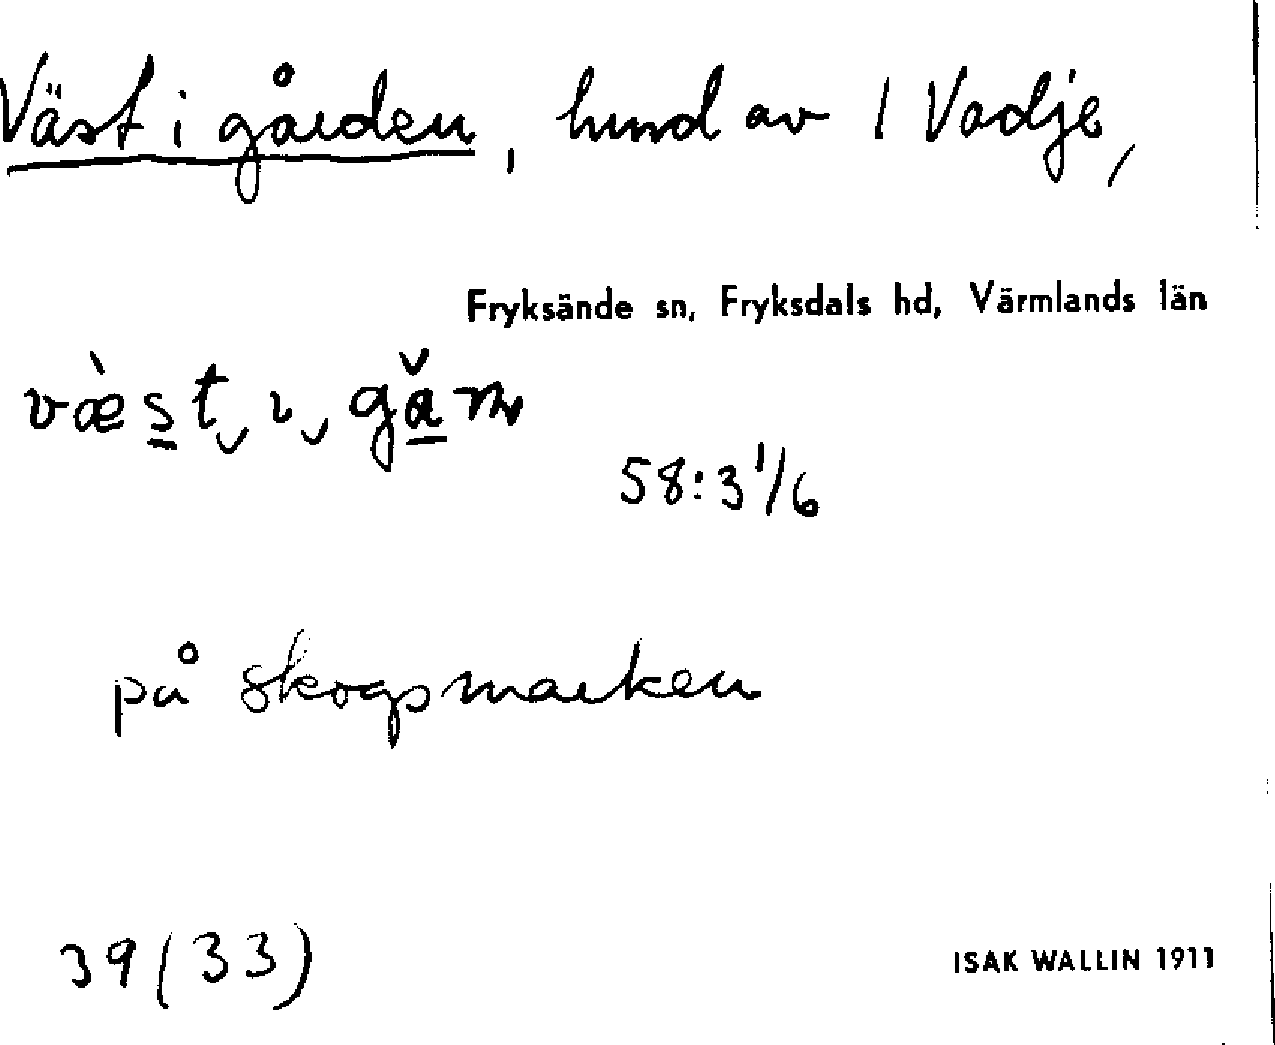 Väst i gården, hmd av 1 Vadje,
Fryksände sn, Fryksdals hd, Värmlands län
58:3 1/6
på skogsmarken
39 (33)
ISAK WALLIN 1911